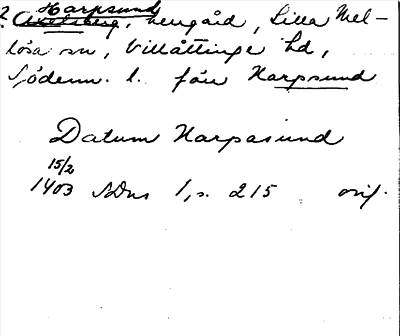 2. Harpsund
Axelsberg, herrgård, Lilla Mel-
lösa sn, Villåttinge hd,
Söderm. l. förr Harpsund
Datum Harpasund
15/2
1403 SDns 1, s. 215 orig.